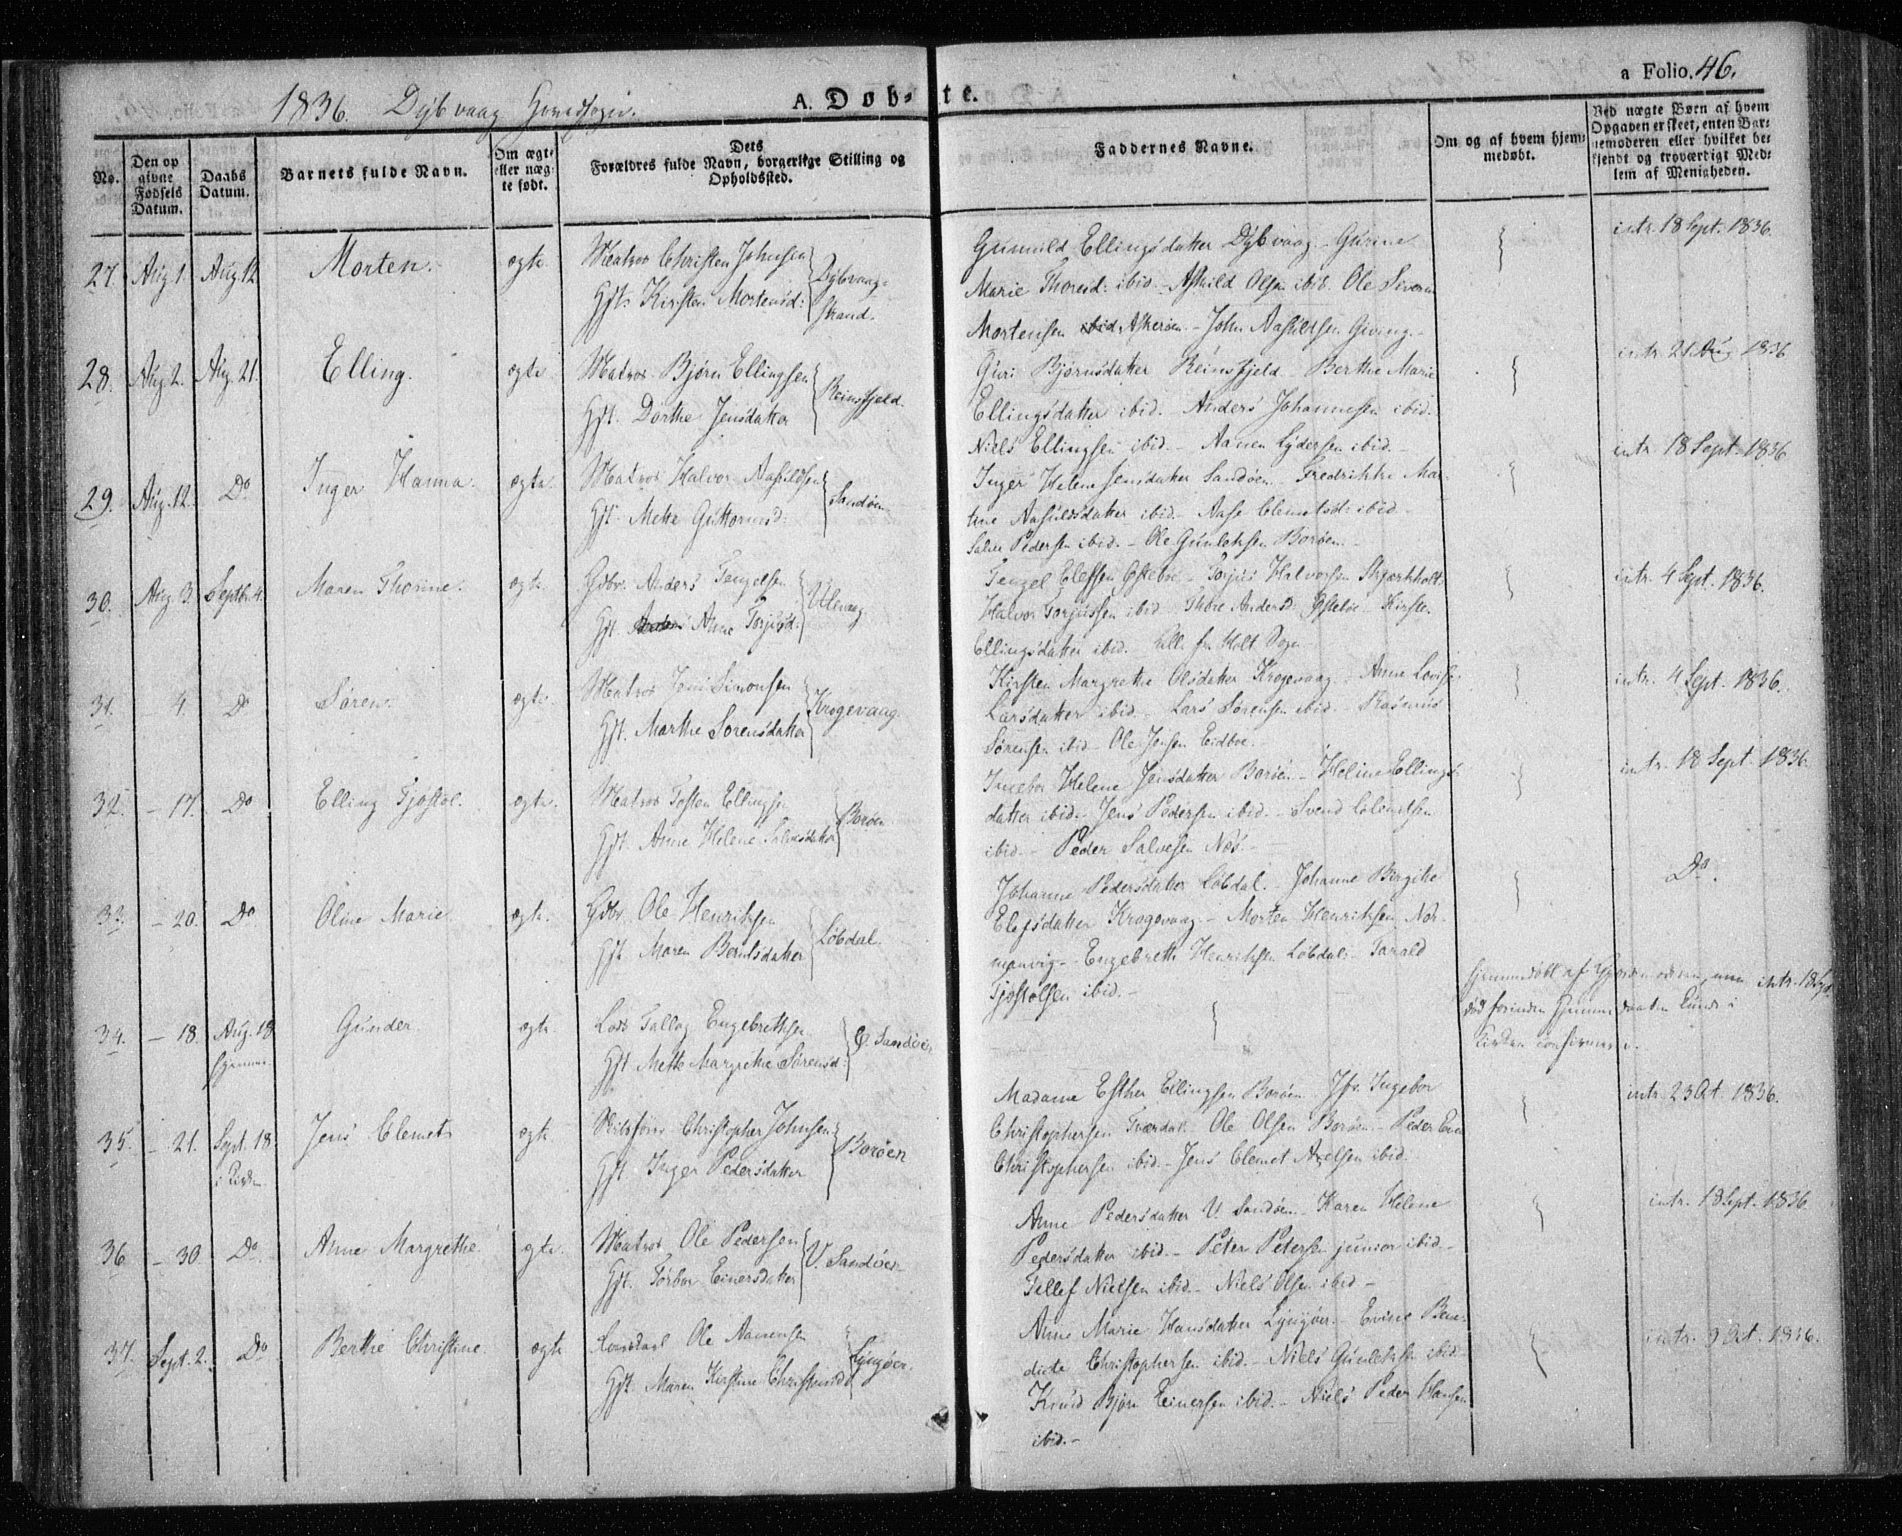 1836. Dybvaag Hovedsogn.
A. Døb-te.
a Folio. 46.
No.
Den op givne Fødsels Datum.
Daabs Datum.
Barnets fulde Navn.
Om ægte eller uæg- te født.
Dets Forældres fulde Navn, borgerlige Stilling og Opholdssted.
Faddernes Navne.
Om og af hvem hjem- medøbt.
Ved uægte Børn af hvem Opgaven er skeet, enten Bar- nemoderen eller hvilket be- kjendt og troværdigt Med- lem af Menigheden.
27. Aug 1. Aug 12 Morten. ægte Matros Christen Johnsen
Gft. Kirsten Mortensd: Dybvaag- strand.
Gunnild Ellingsdatter Dybvaag - Gurine
Marie Thoresd: ibid - Askild Olsen ibid. Ole Severin
Mortensen Askerøen - John Aasuldsen Giving.
intr. 18 Sept. 1836.
28. Aug. 2. Aug. 21. Elling. ægte Matros Bjørn Ellingsen
Gft. Dorthe Jensdatter Reinsfjeld.
Guri Bjørnsdatter Reinsfjeld - Berthe Marie
Ellingsdatter ibid. Anders Johannesen ibid.
Niels Ellingsen ibid. - Aanen Lydersen ibid. -
intr. 21 Aug 1836
29. Aug. 12. Do Inger Hanna. ægte Matros Halvor Aasuldsen
Gft. Mette Guttormsd: Sandøen
Inger Helene Jensdatter Sandøen Fredrikke Mar-
tine Aasuldsdatter ibid. - Aase Clemetsd: ibid -
Salve Pedersen ibid. - Ole Gunleksen Borøen. -
intr. 18 Sept. 1836
30. Aug 3. Septbr 4. Maren Thorine. ægte Gdbr. Anders Tengelsen
Gft. Anne Torjusd: Ulevaag
Tengel Elefsen Østebø - Torjus Halvorsen Skjærkholt
Halvor Torjussen ibid Thore Andersd. Østebø. Kirste.
Ellingsdatter ibid. - fra Holt Sogn
intr. 4 Sept. 1836.
31. - 4. Do Søren. ægte Matros Jens Simonsen
Gft. Marthe Sørensdatter Krogevaag.
Kirsten Margrethe Olsdatter Krogevaag - Anne Lovise
Larsdatter ibid. - Lars Sørensen ibid - Rasmus
Sørensen ibid - Ole Jensen Eidboe. -
intr. 4 Sept. 1836.
32. - 17. Do Elling Tjøstol. ægte Matros Tosten Ellingsen
Gft. Anne Helene Salvesdatter Borøen
Ingebor Helene Jensdatter Borøen - Heline Ellings-
datter ibid - Jens Pedersen ibid. - Svend Clemetsen
ibid. - Peder Salvesen Næs. -
intr. 18 Sept. 1836
33. - 20. Do Oline Marie ægte Gdbr. Ole Henriksen
Gft. Maren Berntsdatter Løbdal.
Johanne Pedersdatter Løbdal. - Johanne Bergithe
Elefsdatter Krogevaag. - Morten Henriksen Nor-
manvig - Engebreth Henriksen Løbdal. Tarald
Tjøstolsen ibid. -
Do.
34. - 18. Aug. 18 hjemme Gunder ægte Lods Tallag Engebrethsen
Gft. Mette Margrethe Sørensd: Ø. Sandøen
hjemmedøbt af men
død forinden Hjemmedaaben kunde i
Kirken confirmeres.
intr. 18 Sept.
35. - 21. Sept. 18 i Kirken Jens Clemet ægte Skibsfører Christopher Johnsen
Gft. Inger Pedersdatter Borøen
Madame Esther Ellingsen Borøen Jfr. Ingebor
Christophersen Tværdal. Ole Olsen Borøen - Peder
Christophersen ibid. - Jens Clemet Axelsen ibid.
intr. 23 Oct. 1836.
36 - 30. Do. Anne Margrethe ægte Matros Ole Pedersen
Gft. Torbor Einersdatter V. Sandøen
Anne Pedersdatter V. Sandøen - Karen Helene
Pedersdatter ibid. - Peter Petersen junior ibid -
Tellef Nielsen ibid - Niels Olsen ibid -
intr. 18 Sept. 1836
37. Sept. 2. Do Berthe Christine ægte Ole Aanensen
Gft. Maren Kirstine Christensd: Lyngøer.
Anne Marie Hansdatter Lyngøer - Evine Bene-
dicte Christophersen ibid. - Niels Gunleksen ibid -
Knud Bjørn Einersen ibid. - Niels Peder Hansen
ibid. -
intr. 9 Oct. 1836.